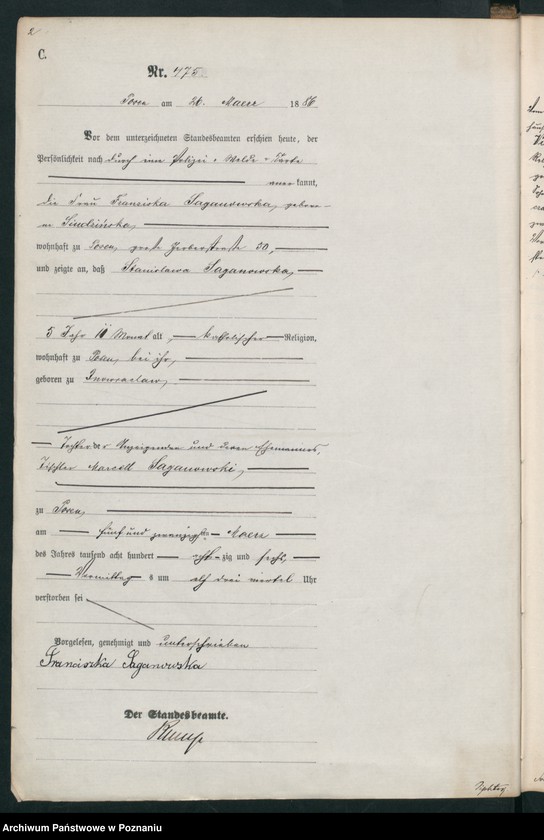 2
C.
Nr. 475
Posen am 26. Maerz 1886
Vor dem unterzeichneten Standesbeamten erschien heute, der
Persönlichkeit nach durch eine Polizei-Melde-Karte
anerkannt,
die Frau Franziska Saganowska, gebore-
ne
wohnhaft zu Posen, große Gerberstraße 30,
und zeigte an, daß Stanislawa Saganowska,
5 Jahr 10 Monat alt, katholischer Religion,
wohnhaft zu Posen, bei ihr,
geboren zu Inowraclaw,
Tochter der Anzeigenden und deren Ehemannes,
Tischler Marcell Saganowski,
zu Posen,
am fünf und zwanzigsten Maerz
des Jahres tausend acht hundert achtzig und sechs,
Vormittags um elf drei viertel Uhr
verstorben sei
Vorgelesen, genehmigt und unterschrieben
Franciszka Saganowska
Der Standesbeamte.
Archiwum Państwowe w Poznaniu